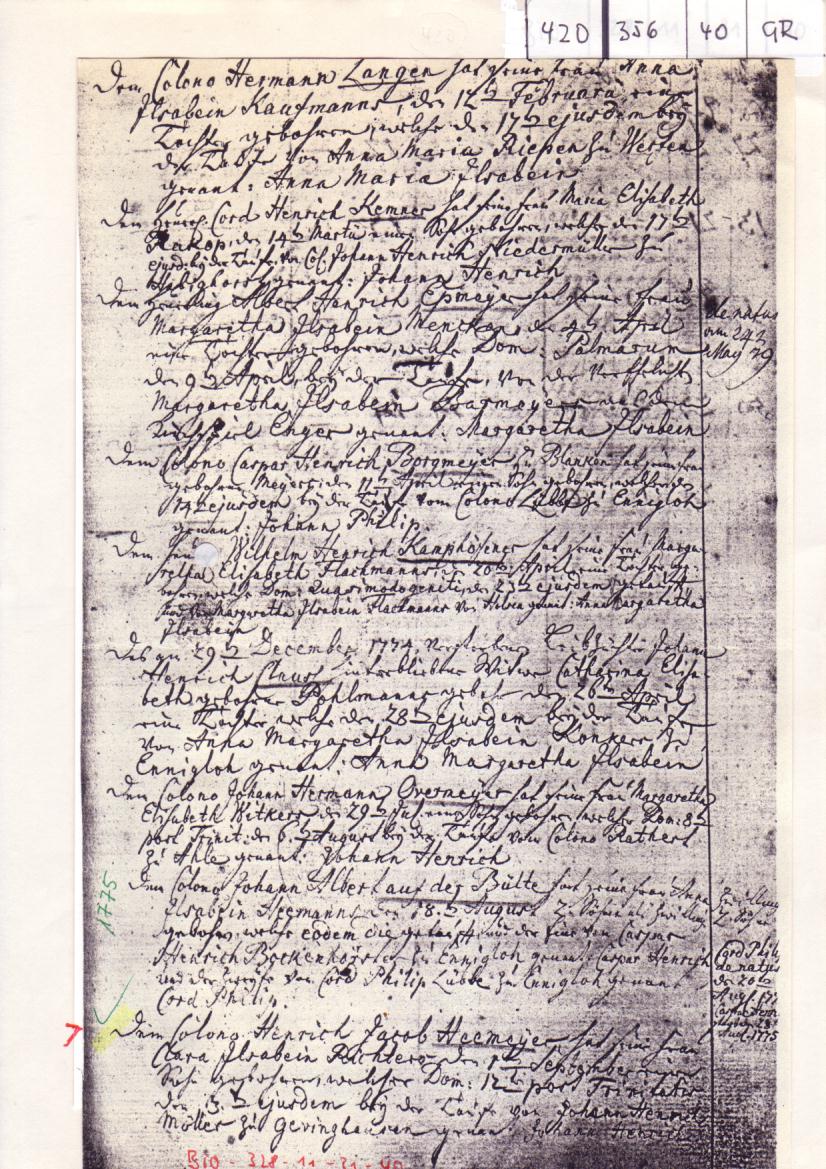 420 356 40 GR
Dem Colono Hermann Langen hat seine Frau Anna
Ilsabein Kaufmanns, den 12ten Februarii eine
Tochter gebohren, welche den 17ten ejusdem bey
der Taufe von Anna Maria Riepen zu Westen
genant: Anna Maria Ilsabein
Dem Cord Henrich Kemner hat seine Frau Maria Elisabeth
den 14ten Martii einen Sohn gebohren, welcher den 17ten
ejusd: bey der Taufe von Col. Johann Henrich Niedermüller zu
genant: Johann Henrich
Dem Heuerling Albert Henrich Epmeyer hat seine Frau
Margaretha Ilsabein den 4ten April
eine Tochter gebohren, welche Dom: Palmarum
den 9ten April, bey der Taufe, von der
Margaretha Ilsabein
Kirchspiel Enger genant: Margaretha Ilsabein
denatus
am 24t
May 79
Dem Colono Caspar Henrich Borgmeyer zu Blanken hat seine Frau
gebohrne Meyers, den 11ten April einen Sohn gebohren, welcher den
14ten ejusdem bey der Taufe vom Colono Lübbe zu Ennigloh
genant: Johann Philip.
Dem Wilhelm Henrich Kamphöfener hat seine Frau Marga-
retha Elisabeth Flachmanns, den 20ten April eine Tochter ge-
bohren, welche Dom: Quasimodogeniti, den 23ten ejusdem getauft
und von Margaretha Ilsabein Flachmanns von genant: Anna Margaretha
Ilsabein
Des am 29ten December 1774 verstorbenen Leibzüchter Johann
Henrich hinterbliebene Witwe Catharina Elisa-
beth gebohrne Pohlmanns gebahr den 26ten April
eine Tochter welche den 28ten ejusdem bey der Taufe
von Anna Margaretha Ilsabein Ronkers zu
Ennigloh genant: Anna Margaretha Ilsabein
Dem Colono Johann Hermann Overmeyer hat seine Frau Margaretha
Elisabeth Witkers den 29ten Jul. einen Sohn gebohren, welcher Dom: 8ten
post Trinit: den 6ten August bey der Taufe vom Colono Rathert
zu Ahle genant: Johann Henrich
1775
Dem Colono Johann Albert auf der Bülte hat seine Frau Anna
Ilsabein Heemanns den 18ten August 2 Söhne als Zwillinge
gebohren, welche eodem die getauft, und der eine von Caspar
Henrich Bockenhöfer zu Ennigloh genant: Caspar Henrich
und der zweyte von Cord Philip Lübbe zu Ennigloh genant
Cord Philip
Zwillinge
2 Söhne
Cord Phili
denatus
den 20ten
Aug. 177
Caspar Henr
den 28t
Aug. 1775
Dem Colono Henrich Jacob Heemeyer, hat seine Frau
Clara Ilsabein Richters den 1ten September einen
Sohn gebohren, welcher Dom: 12te post Trinitatis
den 3ten ejusdem bey der Taufe von Johann Henrich
Möller zu Gevinghausen genant: Johann Henrich
Bio - 328 - 11 - 31 - 40